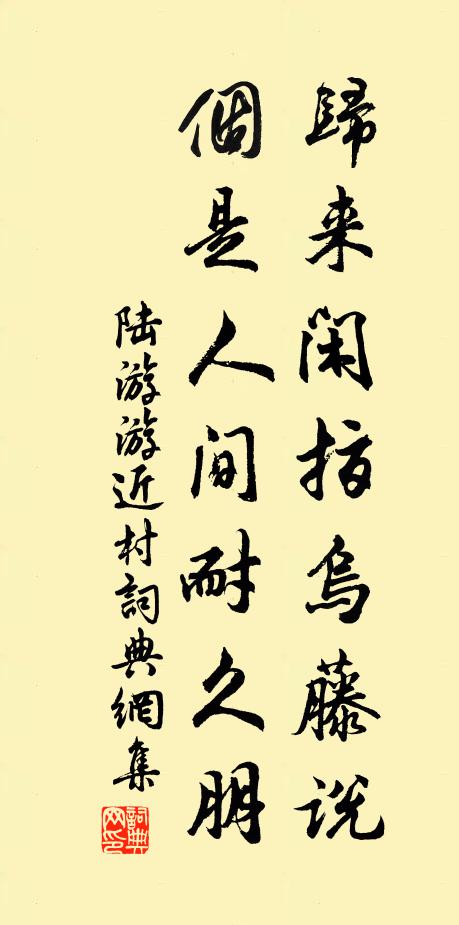 歸来闲指烏藤説
個是人間耐久朋
陆游游近村詞典網集
詞典网印